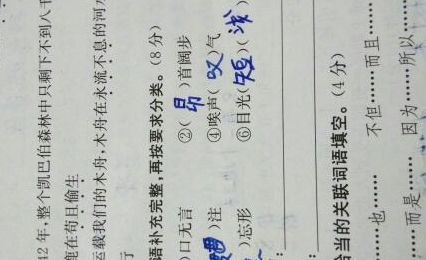 12年,整个凯巴伯森林中只剩下不到八千
鹿在苟且偷生
运载我们的木舟,木舟在永流不息的河水
行
语补充完整,再按要求分类。(8分)
)口无言 ②(昂)首阔步
)注 ④唉声(叹)气
)忘形 ⑥目光(短)(浅)
恰当的关联词语填空。(4分)
……也…… 不但……而且……
……而是…… 因为……所以